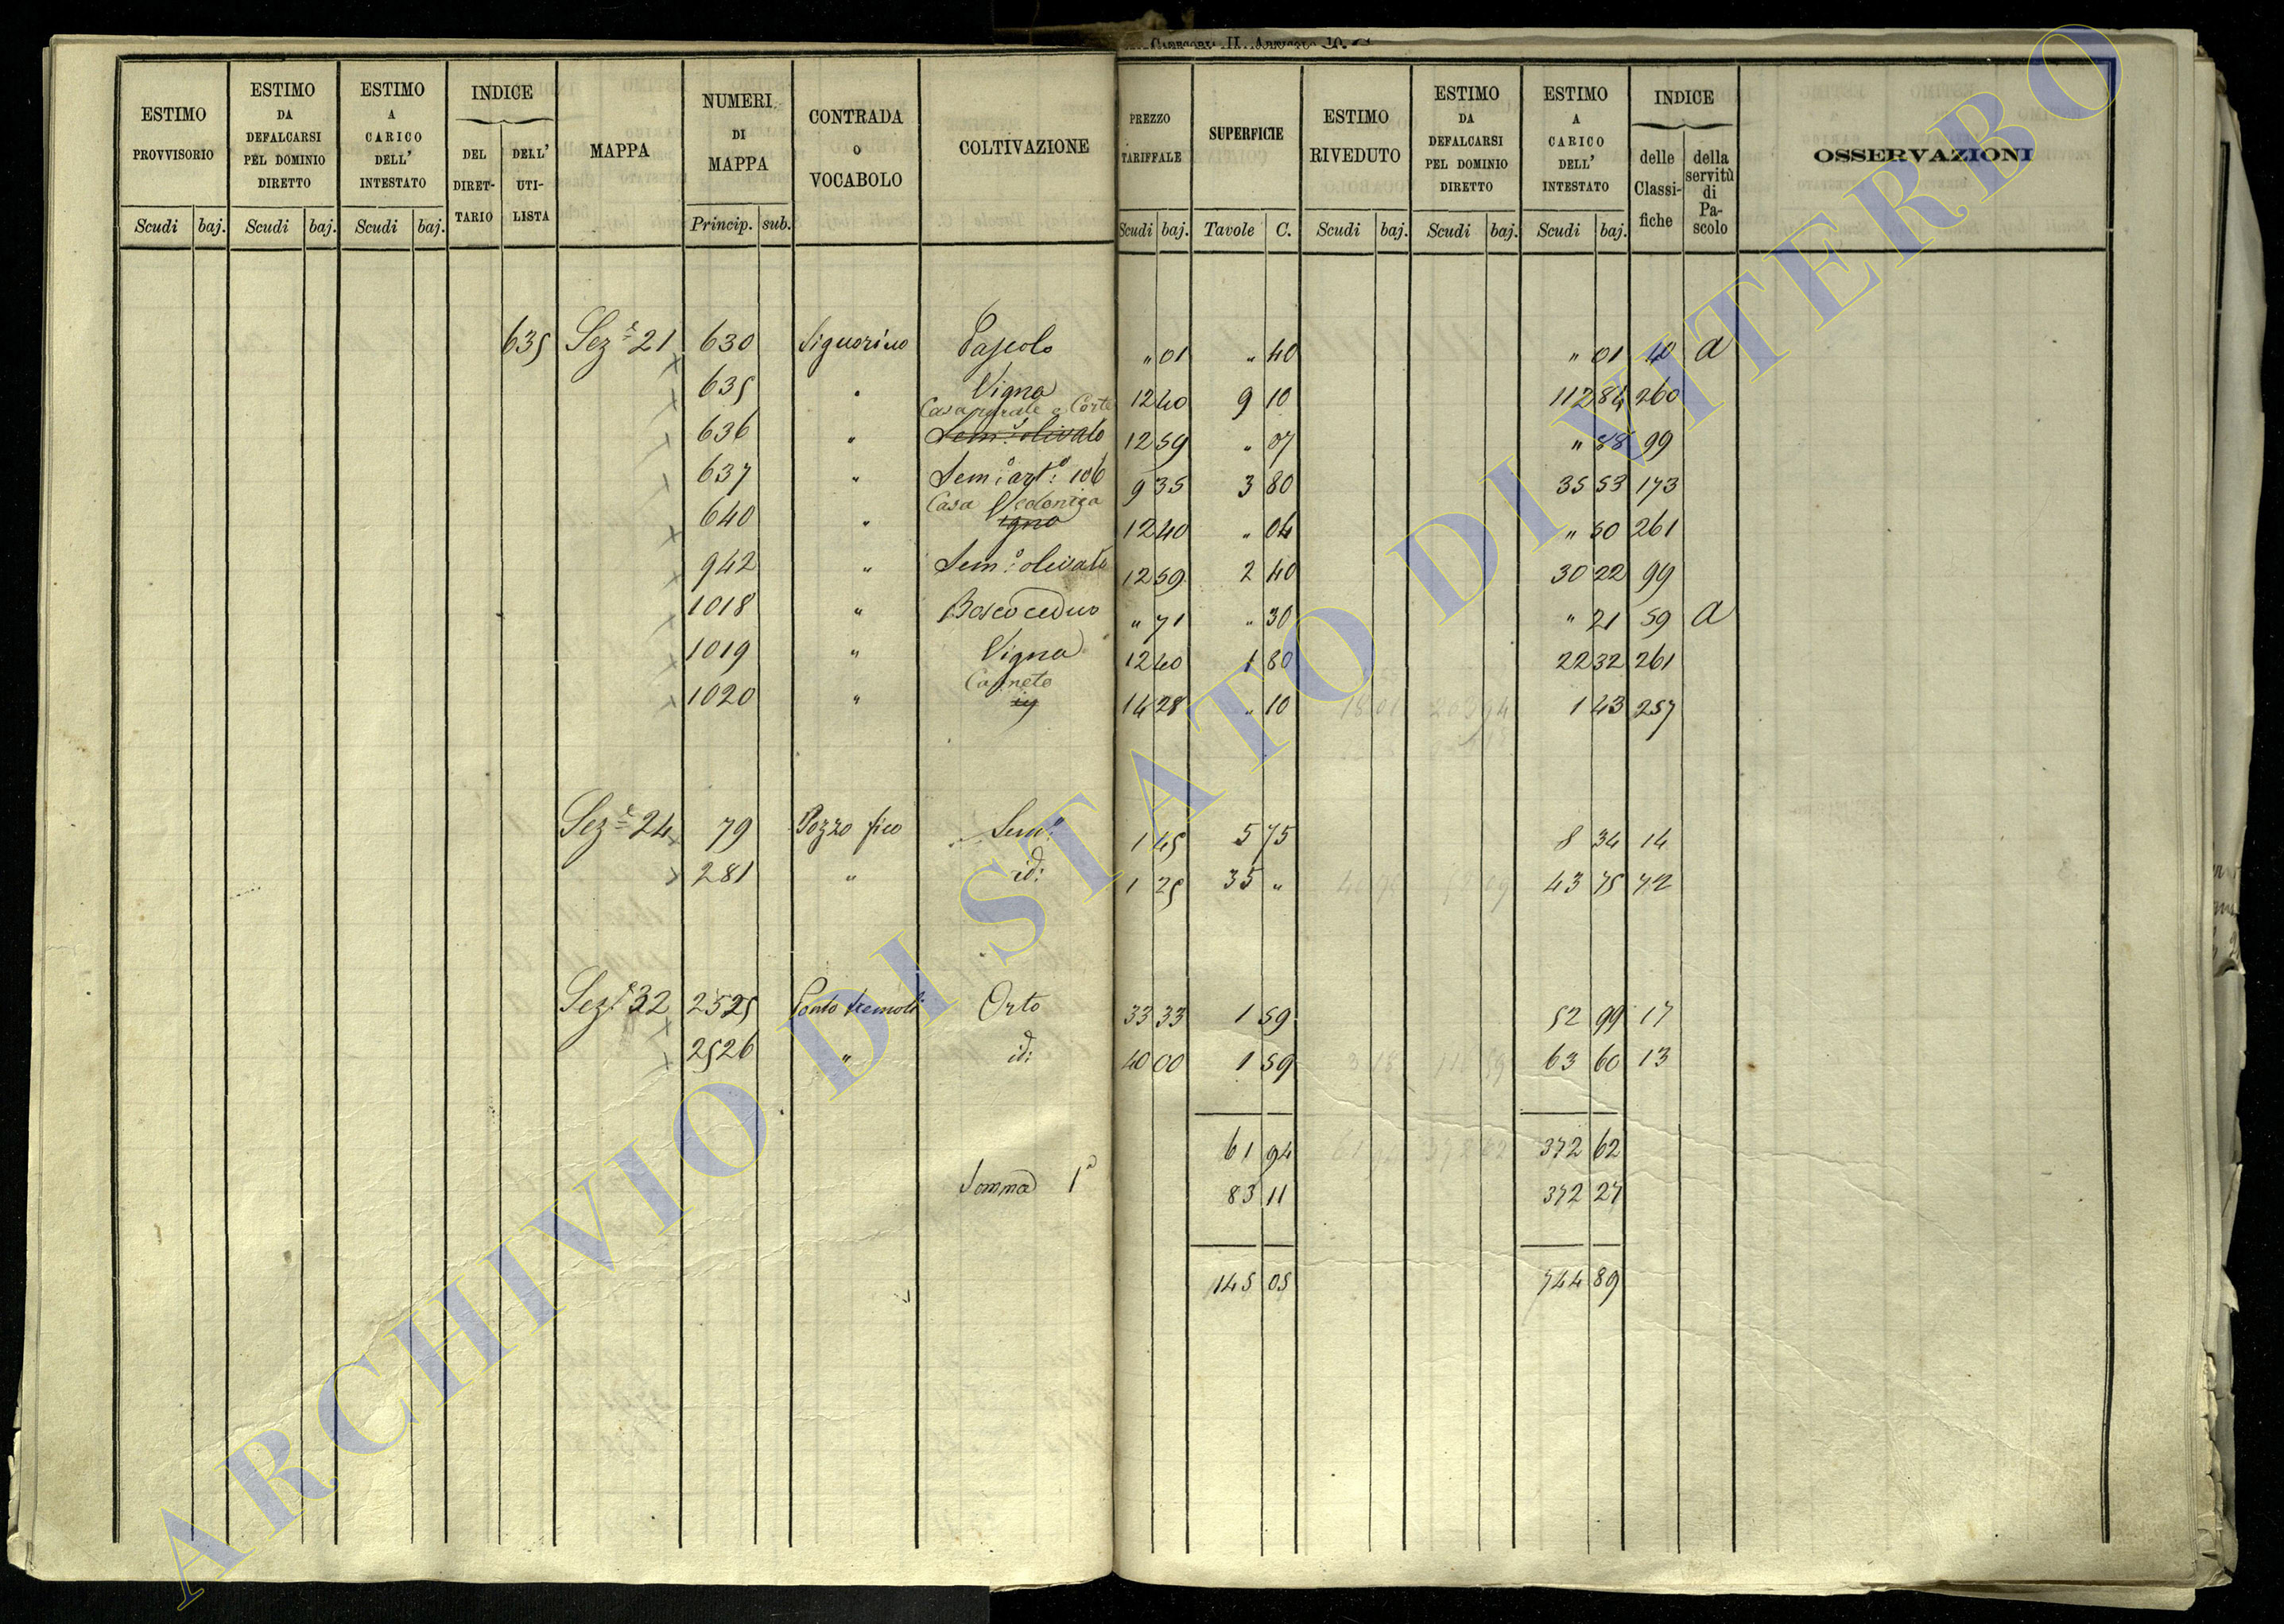 CATEGORIA II. ARTICOLO 10.
ESTIMO PROVVISORIO | ESTIMO DA DEFALCARSI PEL DOMINIO DIRETTO | ESTIMO A CARICO DELL' INTESTATO | INDICE DEL DIRETTARIO | DELL' UTILISTA | MAPPA | NUMERI DI MAPPA | CONTRADA O VOCABOLO | COLTIVAZIONE | PREZZO TARIFFALE | SUPERFICIE | ESTIMO RIVEDUTO | ESTIMO DA DEFALCARSI PEL DOMINIO DIRETTO | ESTIMO A CARICO DELL' INTESTATO | INDICE delle Classifiche | della servitù di Pascolo | OSSERVAZIONI
Scudi baj. Scudi baj. Scudi baj. Princip. sub. Scudi baj. Tavole C. Scudi baj. Scudi baj. Scudi baj.
635 Sez.e 21 630 Signorino Pascolo " 01 " 40 " 01 40 a
635 " Vigna 12 40 9 10 112 84 260
Casa rurale e Corte
636 " Sem.o olivato 12 59 " 07 " 88 99
637 " Sem.o art.o 106 9 35 3 80 35 53 173
Casa
640 " 12 40 " 04 " 50 261
942 " Sem.o olivato 12 59 2 40 30 22 99
1018 " Bosco ceduo " 71 " 30 " 21 59 a
1019 " Vigna 12 40 1 80 22 32 261
Canneto
1020 " 14 28 " 10 1 43 257
Sez.e 24 79 Pozzo fico Sem.o 1 45 5 75 8 34 14
281 " id: 1 25 35 " 43 75 72
Sez.e 32 2525 Ponte tremoli Orto 33 33 1 59 52 99 17
2526 " id: 40 00 1 59 63 60 13
61 94 372 62
Somma 1a 83 11 372 27
145 05 744 89
ARCHIVIO DI STATO DI VITERBO